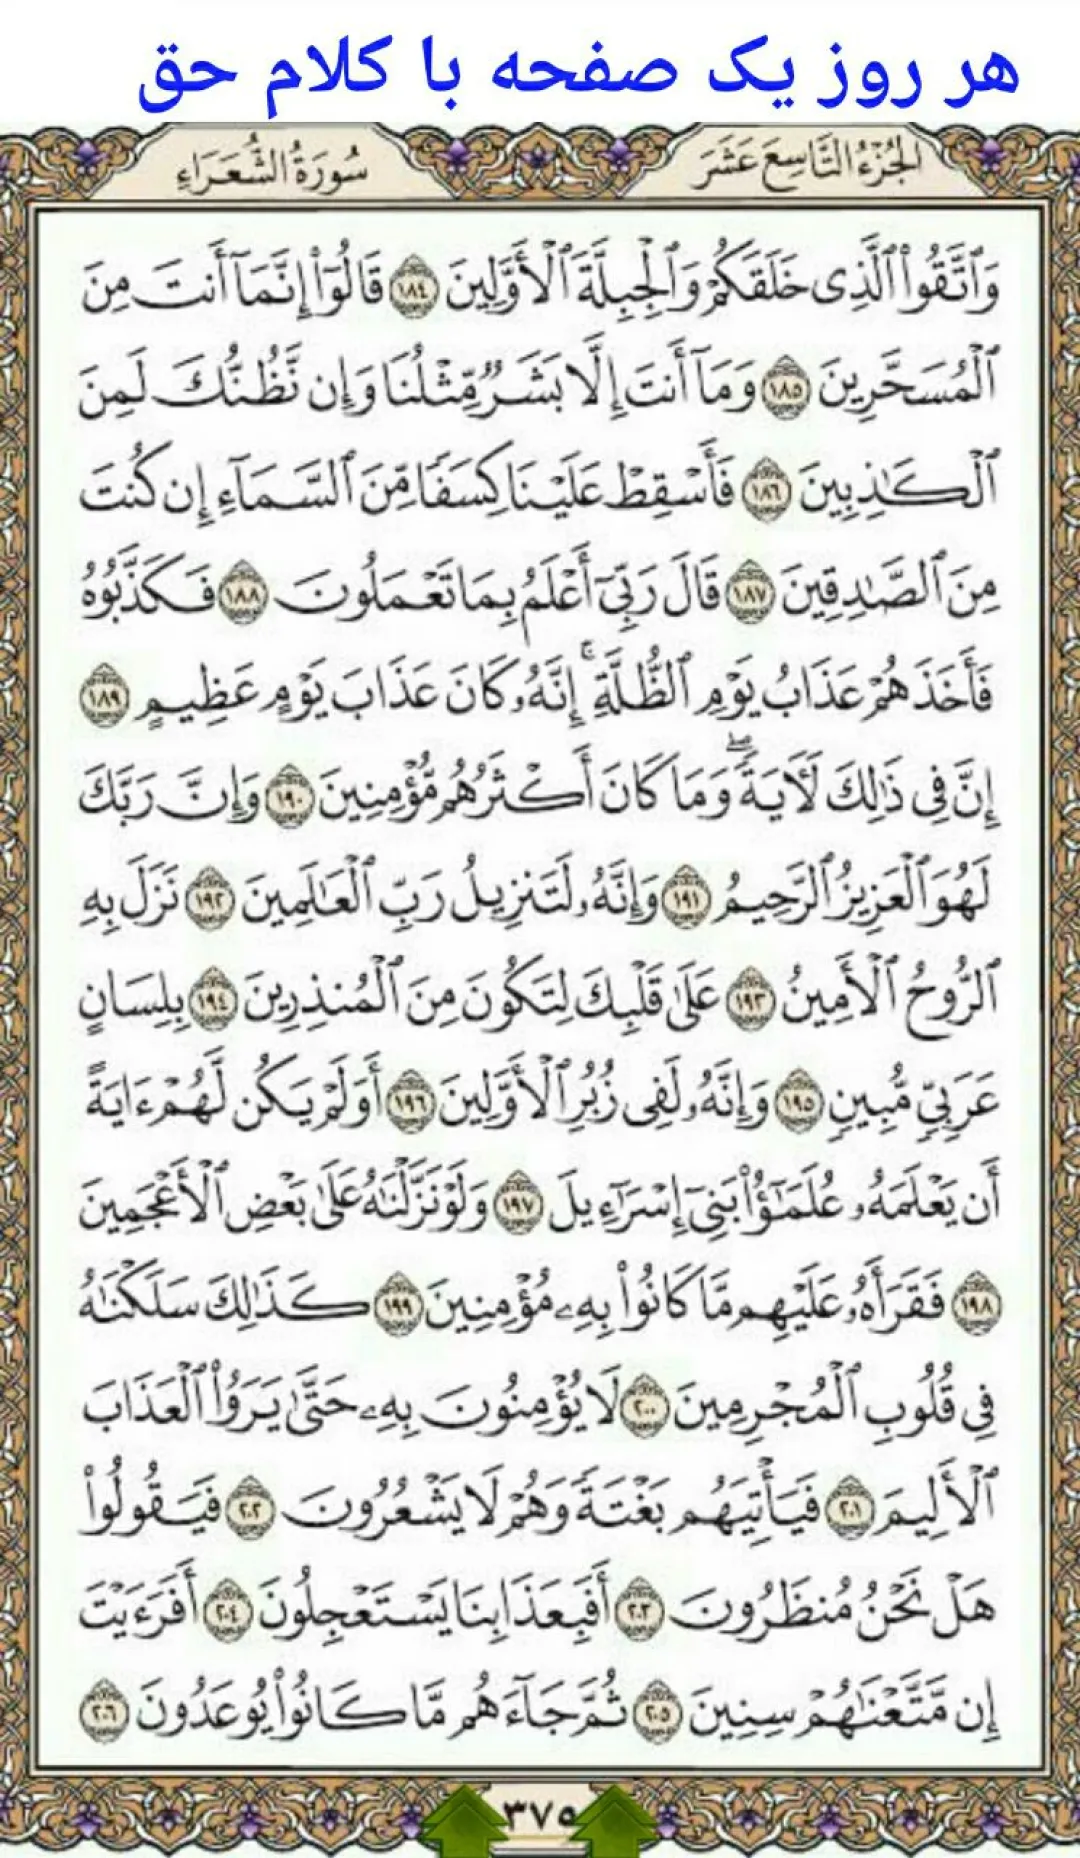 هر روز یک صفحه با کلام حق
الجُزْءُ التَّاسِعَ عَشَرَ
سُورَةُ الشُّعَرَاءِ
وَٱتَّقُوا۟ ٱلَّذِى خَلَقَكُمْ وَٱلْجِبِلَّةَ ٱلْأَوَّلِينَ ١٨٤ قَالُوٓا۟ إِنَّمَآ أَنتَ مِنَ
ٱلْمُسَحَّرِينَ ١٨٥ وَمَآ أَنتَ إِلَّا بَشَرٌ مِّثْلُنَا وَإِن نَّظُنُّكَ لَمِنَ
ٱلْكَـٰذِبِينَ ١٨٦ فَأَسْقِطْ عَلَيْنَا كِسَفًا مِّنَ ٱلسَّمَآءِ إِن كُنتَ
مِنَ ٱلصَّـٰدِقِينَ ١٨٧ قَالَ رَبِّىٓ أَعْلَمُ بِمَا تَعْمَلُونَ ١٨٨ فَكَذَّبُوهُ
فَأَخَذَهُمْ عَذَابُ يَوْمِ ٱلظُّلَّةِ ۚ إِنَّهُۥ كَانَ عَذَابَ يَوْمٍ عَظِيمٍ ١٨٩
إِنَّ فِى ذَٰلِكَ لَـَٔايَةً ۖ وَمَا كَانَ أَكْثَرُهُم مُّؤْمِنِينَ ١٩٠ وَإِنَّ رَبَّكَ
لَهُوَ ٱلْعَزِيزُ ٱلرَّحِيمُ ١٩١ وَإِنَّهُۥ لَتَنزِيلُ رَبِّ ٱلْعَـٰلَمِينَ ١٩٢ نَزَلَ بِهِ
ٱلرُّوحُ ٱلْأَمِينُ ١٩٣ عَلَىٰ قَلْبِكَ لِتَكُونَ مِنَ ٱلْمُنذِرِينَ ١٩٤ بِلِسَانٍ
عَرَبِىٍّ مُّبِينٍ ١٩٥ وَإِنَّهُۥ لَفِى زُبُرِ ٱلْأَوَّلِينَ ١٩٦ أَوَلَمْ يَكُن لَّهُمْ ءَايَةً
أَن يَعْلَمَهُۥ عُلَمَـٰٓؤُا۟ بَنِىٓ إِسْرَٰٓءِيلَ ١٩٧ وَلَوْ نَزَّلْنَـٰهُ عَلَىٰ بَعْضِ ٱلْأَعْجَمِينَ
١٩٨ فَقَرَأَهُۥ عَلَيْهِم مَّا كَانُوا۟ بِهِۦ مُؤْمِنِينَ ١٩٩ كَذَٰلِكَ سَلَكْنَـٰهُ
فِى قُلُوبِ ٱلْمُجْرِمِينَ ٢٠٠ لَا يُؤْمِنُونَ بِهِۦ حَتَّىٰ يَرَوُا۟ ٱلْعَذَابَ
ٱلْأَلِيمَ ٢٠١ فَيَأْتِيَهُم بَغْتَةً وَهُمْ لَا يَشْعُرُونَ ٢٠٢ فَيَقُولُوا۟
هَلْ نَحْنُ مُنظَرُونَ ٢٠٣ أَفَبِعَذَابِنَا يَسْتَعْجِلُونَ ٢٠٤ أَفَرَءَيْتَ
إِن مَّتَّعْنَـٰهُمْ سِنِينَ ٢٠٥ ثُمَّ جَآءَهُم مَّا كَانُوا۟ يُوعَدُونَ ٢٠٦
٣٧٥